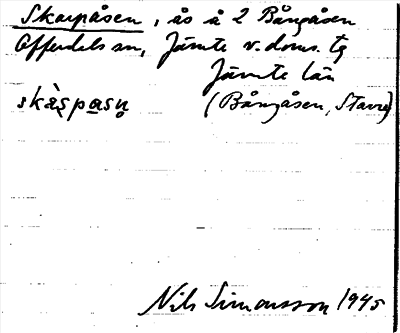 Skarpåsen, ås å 2 Bångåsen
Offerdals sn, Jämte v. doms. tg
Jämte län
skàs̩pa̲sn̥ (Bångåsen, Stavre)
Nils Simonsson 1945